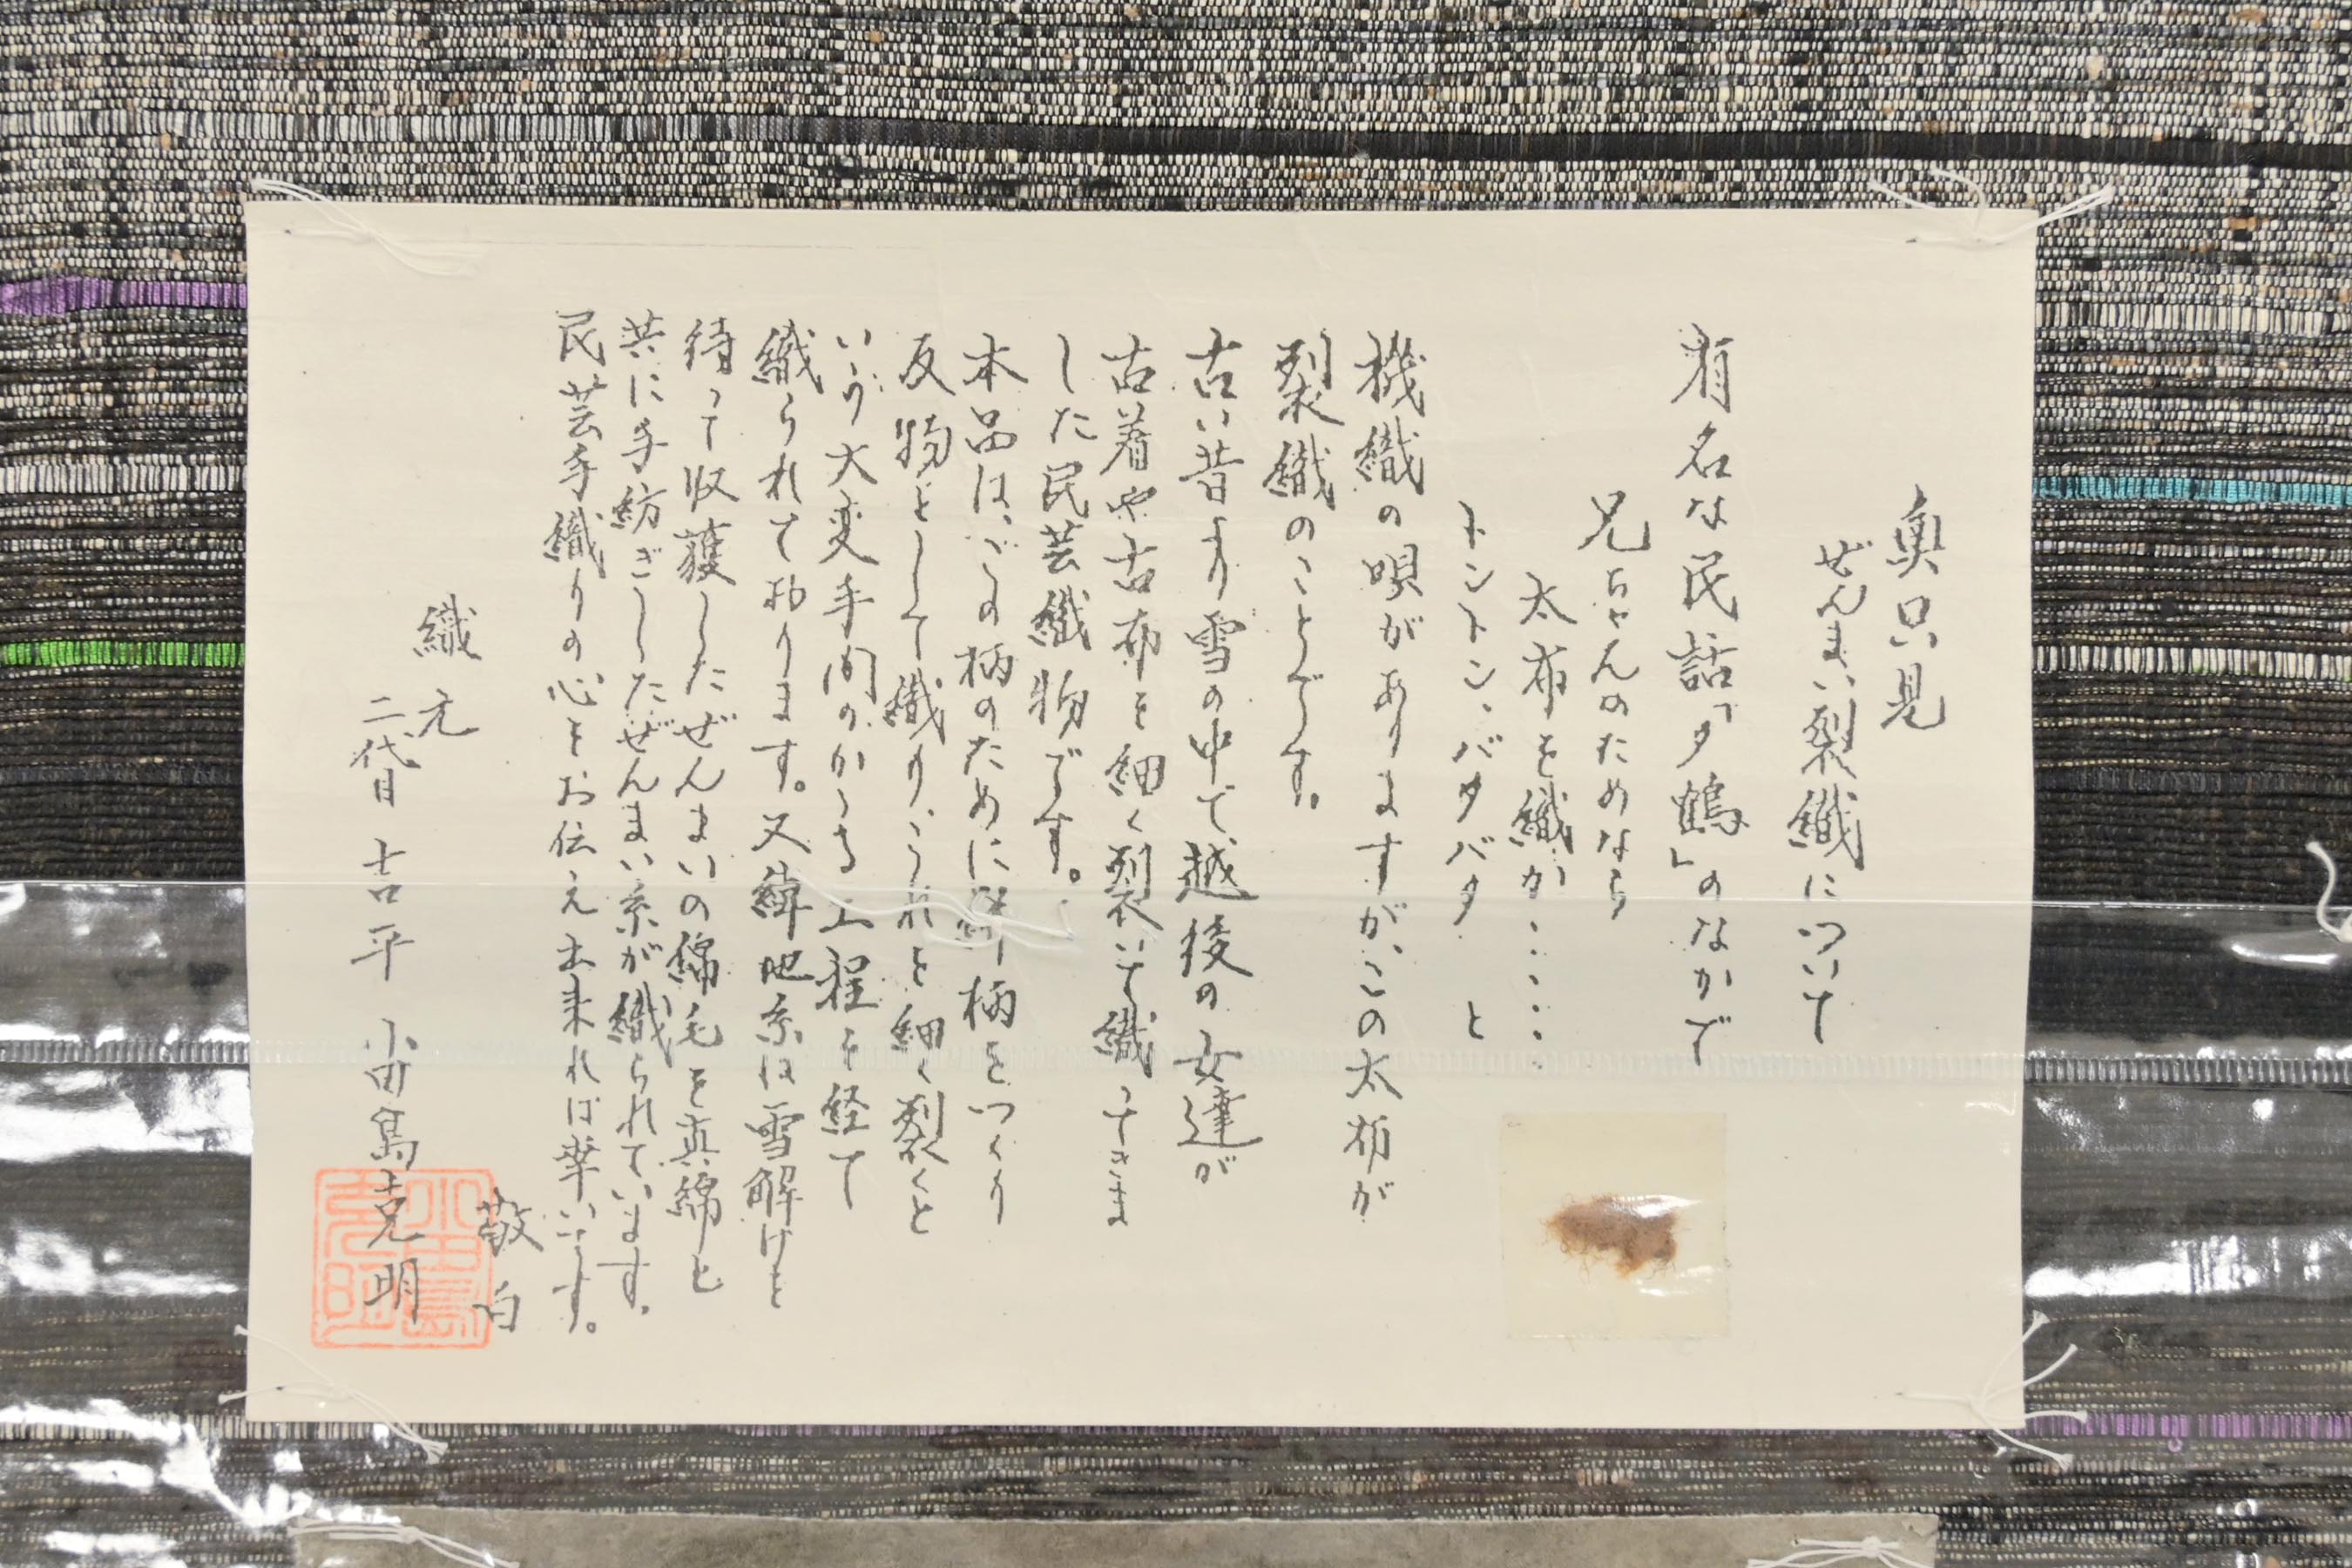 奥只見
ぜんまい裂織について
有名な民話「夕鶴」のなかで
兄ちゃんのためなら
太布を織か……
トントン、バタバタ と
機織の唄がありますが、この太布が
裂織のことです。
古い昔より雪の中で越後の女達が
古着や古布を細く裂いて織ってきま
した民芸織物です。
本品は、この柄のために絣柄をつくり
反物として織り、これを細く裂くと
いう大変手間のかゝる工程を経て
織られております。又緯地糸は雪解けと
待って収穫したぜんまいの綿毛を真綿と
共に手紡ぎしたぜんまい糸が織られています。
民芸手織りの心をお伝え出来れば幸いです。
敬白
織元
二代目 吉平 小田島克明